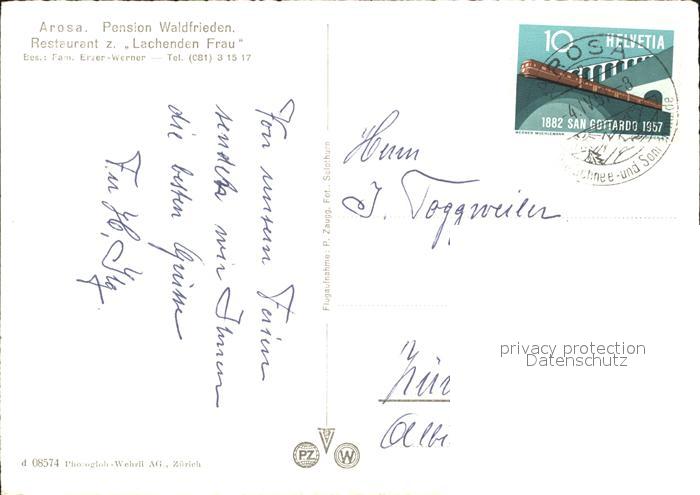 Arosa. Pension Waldfrieden.
Restaurant z. „Lachenden Frau“
Bes.: Fam. Erzer-Werner — Tel. (081) 3 15 17
Von unsern Ferien
sendet wir Ihnen
die besten Grüsse
Flugaufnahme: P. Zaugg, Fot., Solothurn
10 HELVETIA
1882 SAN GOTTARDO 1957
AROSA
Schnee- und
Herrn
J. Toggweiler
privacy protection
Datenschutz
PZ
W
d 08574 Photoglob-Wehrli AG., Zürich